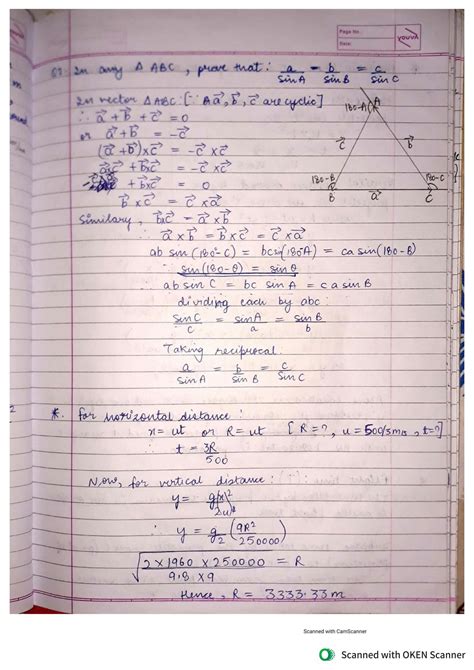 Page No.
Date:
Youva
Q7. In any Δ ABC, prove that: a/sinA = b/sinB = c/sinC
In vector Δ ABC: [∵ a⃗, b⃗, c⃗ are cyclic]
∴ a⃗ + b⃗ + c⃗ = 0
or a⃗ + b⃗ = -c⃗
(a⃗ + b⃗) x c⃗ = -c⃗ x c⃗
a⃗xc⃗ + b⃗xc⃗ = -c⃗ x c⃗
+ b⃗xc⃗ = 0
b⃗ x c⃗ = c⃗ x a⃗
180-A
A
c⃗
b⃗
180-B
180-C
B
a⃗
C
Similary, b⃗xc⃗ = a⃗ x b⃗
∴ a⃗ x b⃗ = b⃗ x c⃗ = c⃗ x a⃗
ab sin (180°-C) = bc sin(180°-A) = ca sin(180-B)
∴ sin(180-θ) = sinθ
∴ ab sin C = bc sin A = ca sin B
dividing each by abc:
sinC/c = sinA/a = sinB/b
Taking reciprocal:
a/sinA = b/sinB = c/sinC
*. For horizontal distance:
x = ut or R = ut [R=?, u=500/3 m/s, t=?]
∴ t = 3R/500
Now, for vertical distance:
∴ y = g/2 (9R²/250000)
√(2 x 1960 x 250000 / 9.8 x 9) = R
Hence, R = 3333.33 m
Scanned with CamScanner
Scanned with OKEN Scanner